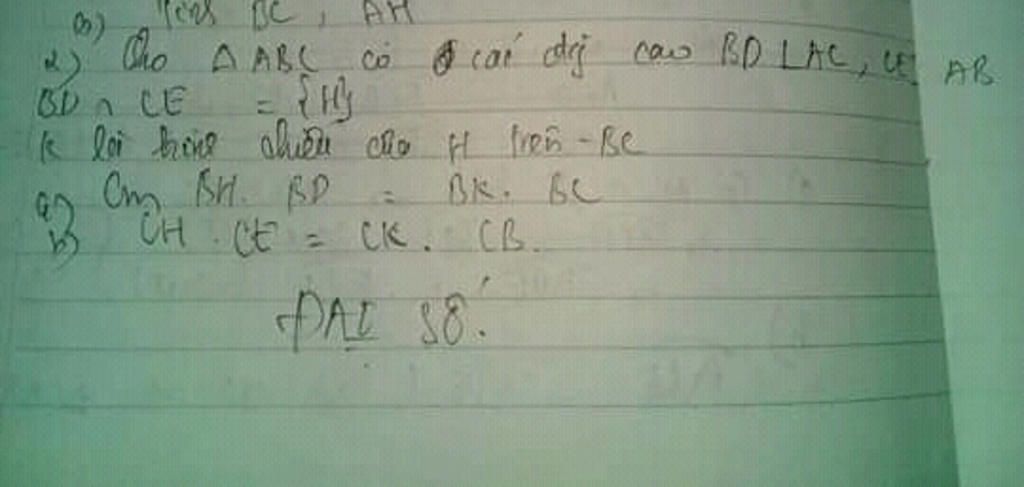 b) Tính BC, AH
2) Cho Δ ABC có các đg cao BD ⊥ AC, CE AB
BD ∩ CE = {H}
K là hình chiếu của H trên BC
a) Cm BH. BD = BK. BC
b) CH . CE = CK . CB.
ĐẠI SỐ.